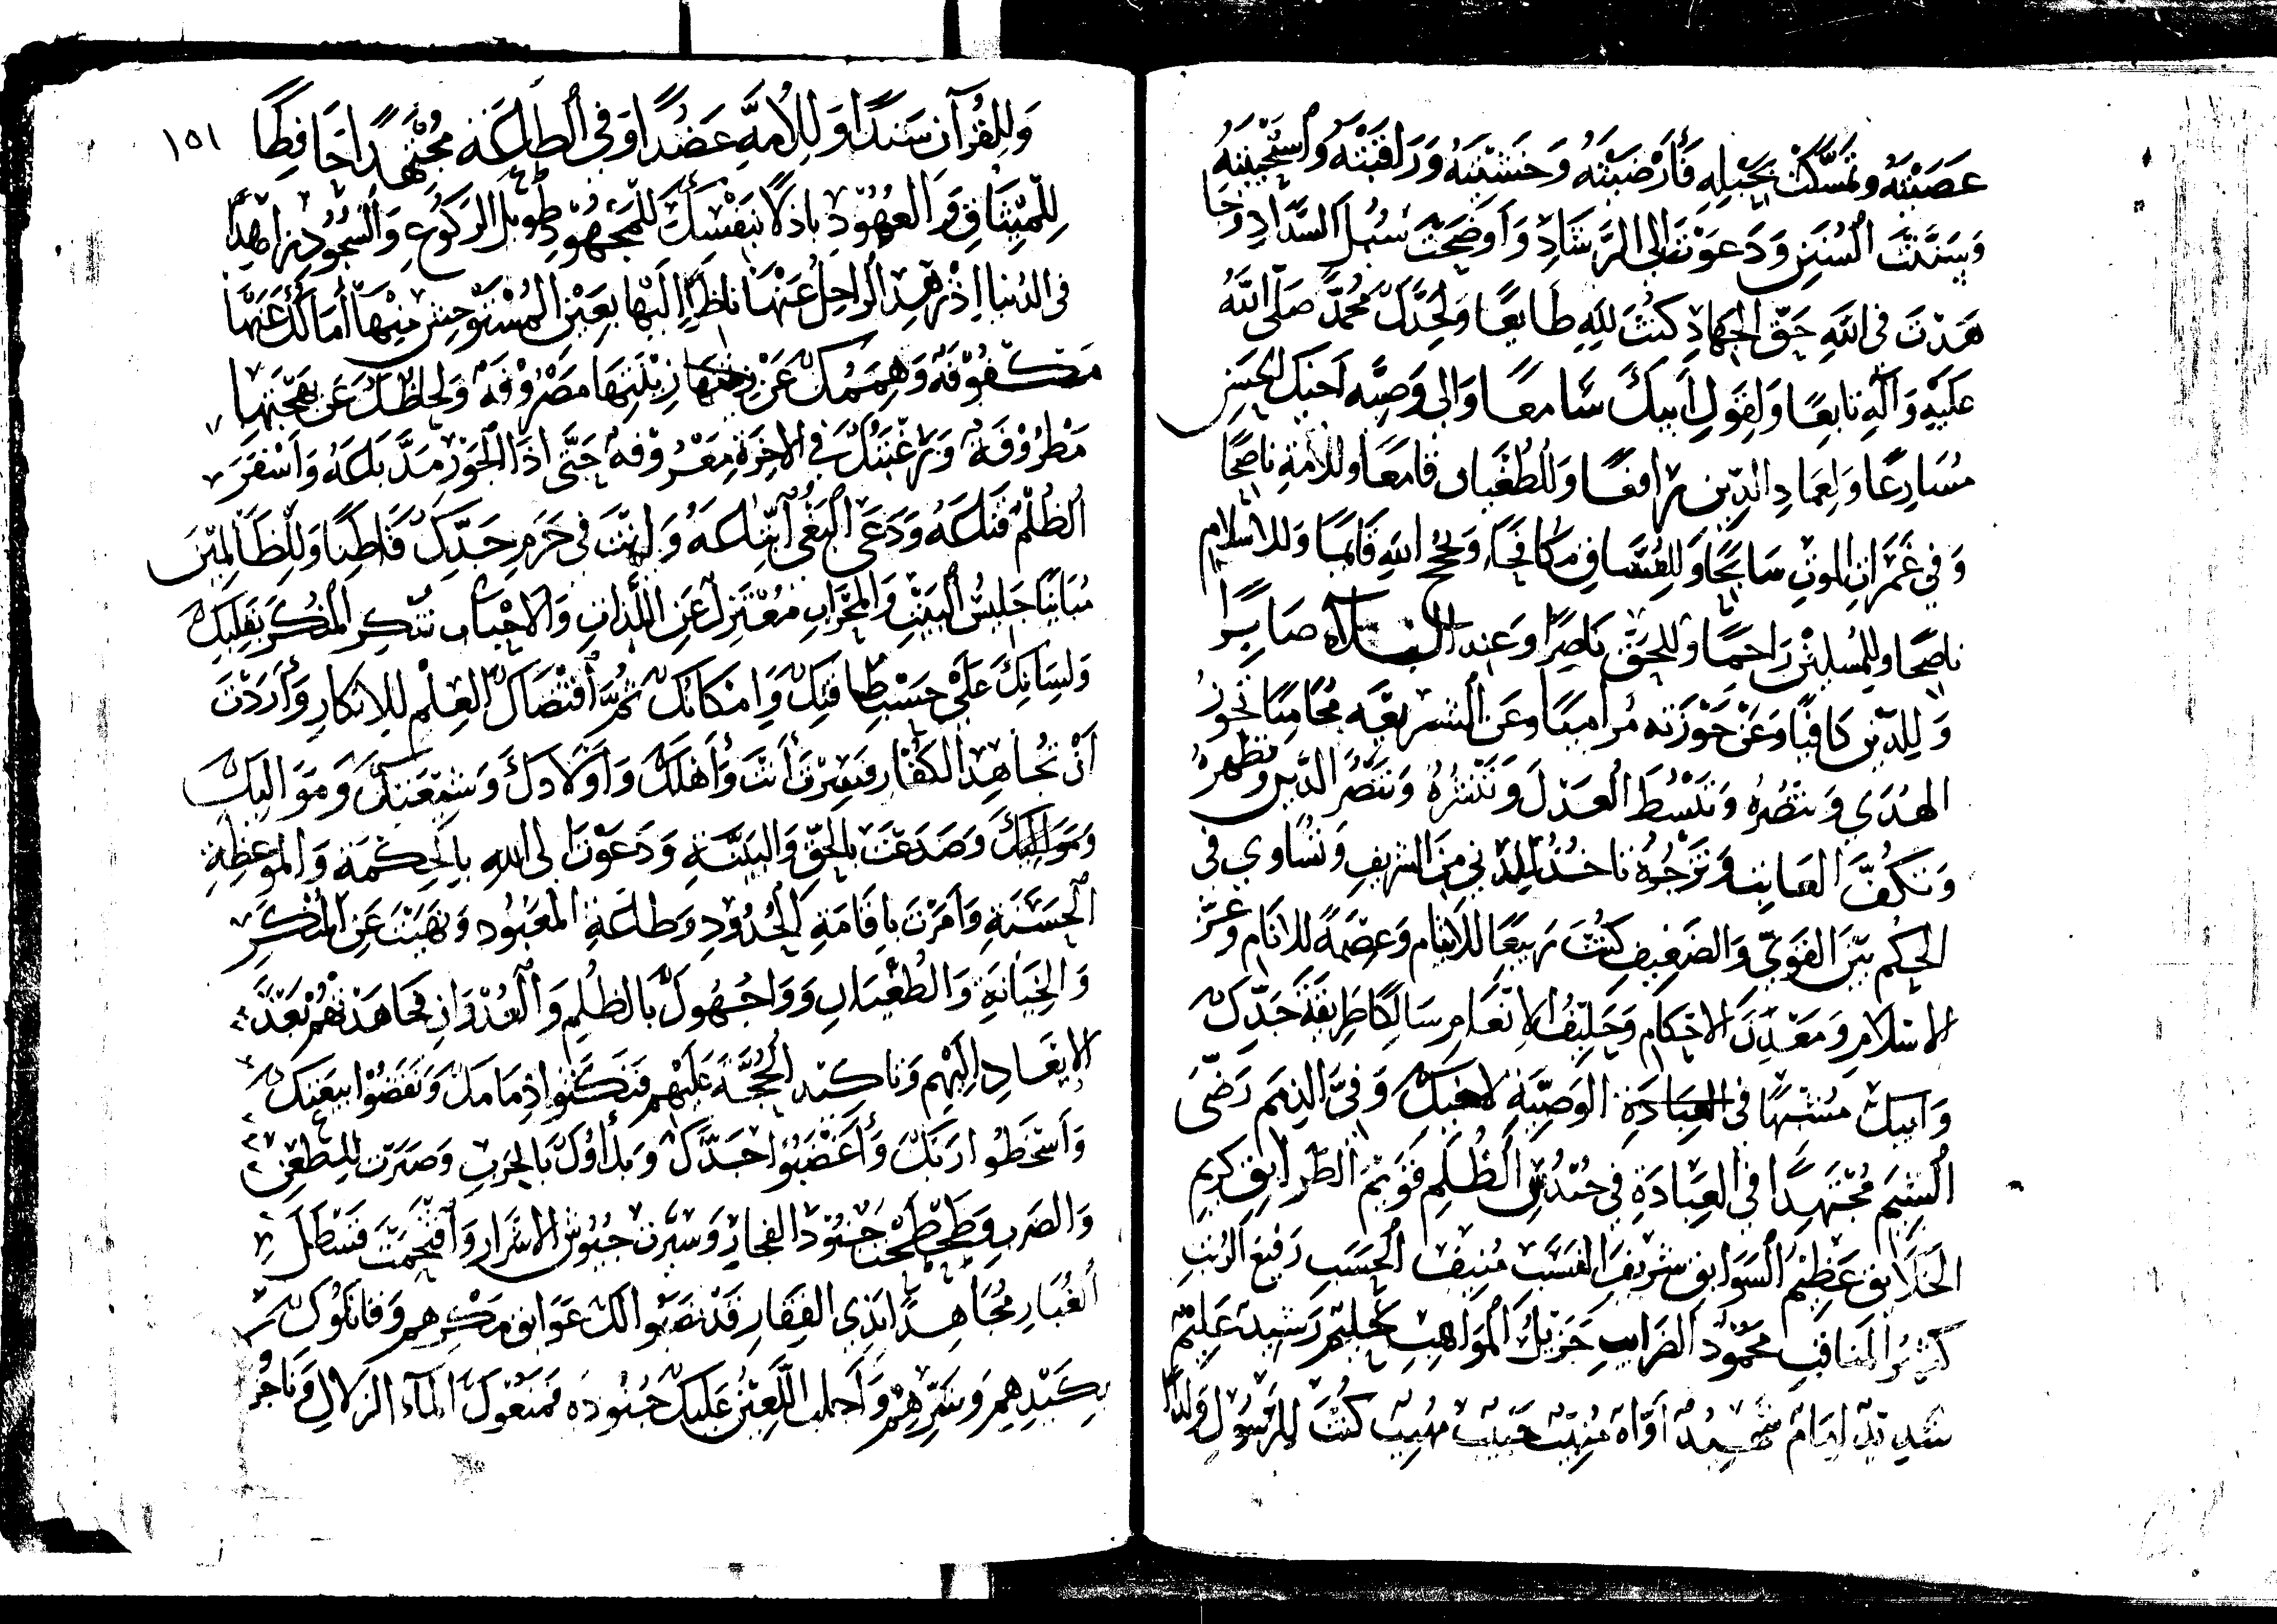 عَصَيْتَهُ وتمسَّكْتَ بحَبْلِهِ فَأَرْضَيْتَهُ وَخَشِيْتَهُ وَرَاقَبْتَهُ وَاسْتَجَبْتَهُ
وَسَنَنْتَ السُنَنَ وَدَعَوْتَ الى الرَّشَادِ وَأَوضَحْتَ سُبُلَ السَّدَادِ وَجَا
هَدْتَ فى اللهِ حَقّ الجِهَادِ كنْتَ لِلهِ طَايِعًا وَلِجَدِّكَ مُحَمَّدٍ صَلّى اللهُ
عَلَيْهِ وَآلِهِ تابِعًا وَلِقَولِ أَبيكَ سَامعًا وَالى وَصِيَّه اخيكَ الحَسَنِ
مُسَارِعًا وَلِعِمَادِ الدِّينِ رافعًا وَلِلطُغْيانِ قامعًا وللأمةِ ناصِحًا
وَفي غَمَرَاتِ الموتِ سَابِحًا وَلِلفُسَّاقِ مكَافِحًا وَبحُججِ اللهِ قَائمًا وَللاسْلامِ
ناصحًا وللمُسلِميْنَ رَاحمًا وَللحَقّ نَاصِرًا وعند البلاء صَابِرًا
وَلِلدّينِ كافِيًا وَعَنْ حَوْزَتِه مُرامِيًا وعَن الشريعَه مُحَامِيًا تحُوزُ
الهُدَي وَتنْصُرُه وَتَبْسُطَ العَدْلَ وَتَنْشُرُهُ وَتَنْصُرُ الدّينَ وتظهرهُ
وَتَكُفُّ العَابِثَ وَتزْجُرُهُ تاخُذُ لِلدَّنِي مِنَ الشريفِ وَتُسَاوِي في
الحُكم بَيْنَ القَوِيّ وَالضَعِيفِ كنْتَ رَبيعًا للايتَام وَعِصْمةً للانام وَعِزَّ
الاسْلامِ وَمَعْدِنَ الاحْكام وَحَلِيْفُ الاِنْعَام سَالِكًا طَرِيقَةَ جَدِّكَ
وَابيكَ مشْبِهًا فى العِبَادَةِ الوَصِيَّةِ لاخيكَ وَفِىَّ الذِمَم رَضَّى
الشِيَم مُجْتهِدًا في العِبَادَةِ في حُنْدُسِ الظُلَمِ قَوِيْمَ الطَّرايقِ كريم
الخَلَايقِ عَظِيْمُ السَوابق شَرِيفَ النسَب مُنِيفَ الحَسَبِ رَفيعَ الرُتبِ
كثيرُ المنَاقبِ محمُودُ الضَرَايبِ جَزيلُ المَوَاهِبِ حَلِيْم رَشِيد عَلِيم
شَدِيد امَام شَهِيْدُ اوَّاه مُنِيْبٌ حَبِيْبٌ مُهِيبٌ كُنْتَ للرسُول وَلدًا
وَلِلقُرْآنِ سَندًا وَلِلأُمةِ عَضُدًا وَفي الطاعَة مُجْتَهِدًا حَافِظًا ١٥١
لِلمِيْثاقِ وَالعُهُوْدِ باذلًا نَفْسَكَ للمَجْهُوْدِ طويل الركُوعِ وَالسُّجُوْدِ زاهِدًا
فى الدُنيا زُهْدِ الراحِلِ عَنْهَا ناظرًا اليْها بِعَيْنِ المُسْتَوحِشِ مِنْهَا أمَالُكَ عَنْهَا
مَكْفُوْفَةٌ وَهِمَمُكَ عَنْ زِيْنَتِهَا مَصْرُوْفَةٌ وَلِحاظكَ عَنْ بَهْجَتِهَا
مَطْرُوْفَةٌ وَرَغْبَتُكَ في الاخِرَةِ مَعْرُوْفَةٌ حَتَّى اذَا الجَورُ مَدَّ بَاعَهُ وَاسْفَرَ
الظُلْمُ قِنَاعَهُ وَدَعَى البَغْى أَتْبَاعَهُ وَانْتَ في حَرَمِ جَدِّكَ قَاطِنًا وَلِلظَالِمِيْنَ
مُبَايِنًا جَلِيسُ البَيْتِ وَالمِحْرَابِ مُعْتَزِلٌ عَنِ اللَّذاتِ وَالاحْبَابِ تُنْكِرُ المُنْكَرَ بِقَلْبِكَ
وَلِسَانِكَ عَلَى حَسْبِ طاقتِكَ وَامْكَانِكَ ثُمَّ اقتَضَاكَ العِلْم لِلانْكارِ وَأَرَدْتَ
أَنْ تُجاهِدَ الكفّار فسِرْتَ أَنْتَ وَأهْلكَ وَاوْلَادكَ وَشِيْعَتكَ وَمَوَالِيكَ
وَصَدَعْتَ بالحَقّ وَالبَيِّنَةِ وَدَعَوْتَ الى اللهِ بِالحِكْمَةِ وَالمَوعِظَةِ
الحَسَنَةِ وَأمَرْتَ بِاقَامَةِ الحُدُودِ وَطاعَةِ المَعْبُود وَنهَيْتَ عَنِ المُنْكَرِ
وَالخِيَانَةِ وَالطُغْيَانِ وَوَاجَهُوكَ بالظُلِم وَالعُدْوَانِ فَجَاهَدْتَهُمْ بَعْدَ
الايْعَادِ اليْهِم وَتاكيد الحُجَّة عَلَيْهِم فَنَكَثُوا ذِمَامَكَ وَنَقَضُوا بيعَتِكَ
وَاسْخَطُوا رَبَّكَ وَأَغْضَبُوا جَدَّكَ وَبَدأوْكَ بالحَرْبِ وَصَبَرت لِلطَعْنِ
وَالضَربِ وَطَحْطَحْتَ جُنُودَ الفجار وَسيَّرت جيُوش الاشَرارِ وَاقْتحَمْتَ قَسْطَلَ
الغُبَارِ مُجَاهِدًا بذِي الفِقَارِ قَدْ نصَبُوا لكَ غوَائِلَ مَكْرِهِم وَقاتَلُوكَ
بكَيْدِهِم وَشَرِّهِمْ وَأَجلبَ اللَّعِيْنُ عَلَيكَ جُنُودَه فَمَنَعُوكَ المَاءَ الزلالِ وَناجزُ